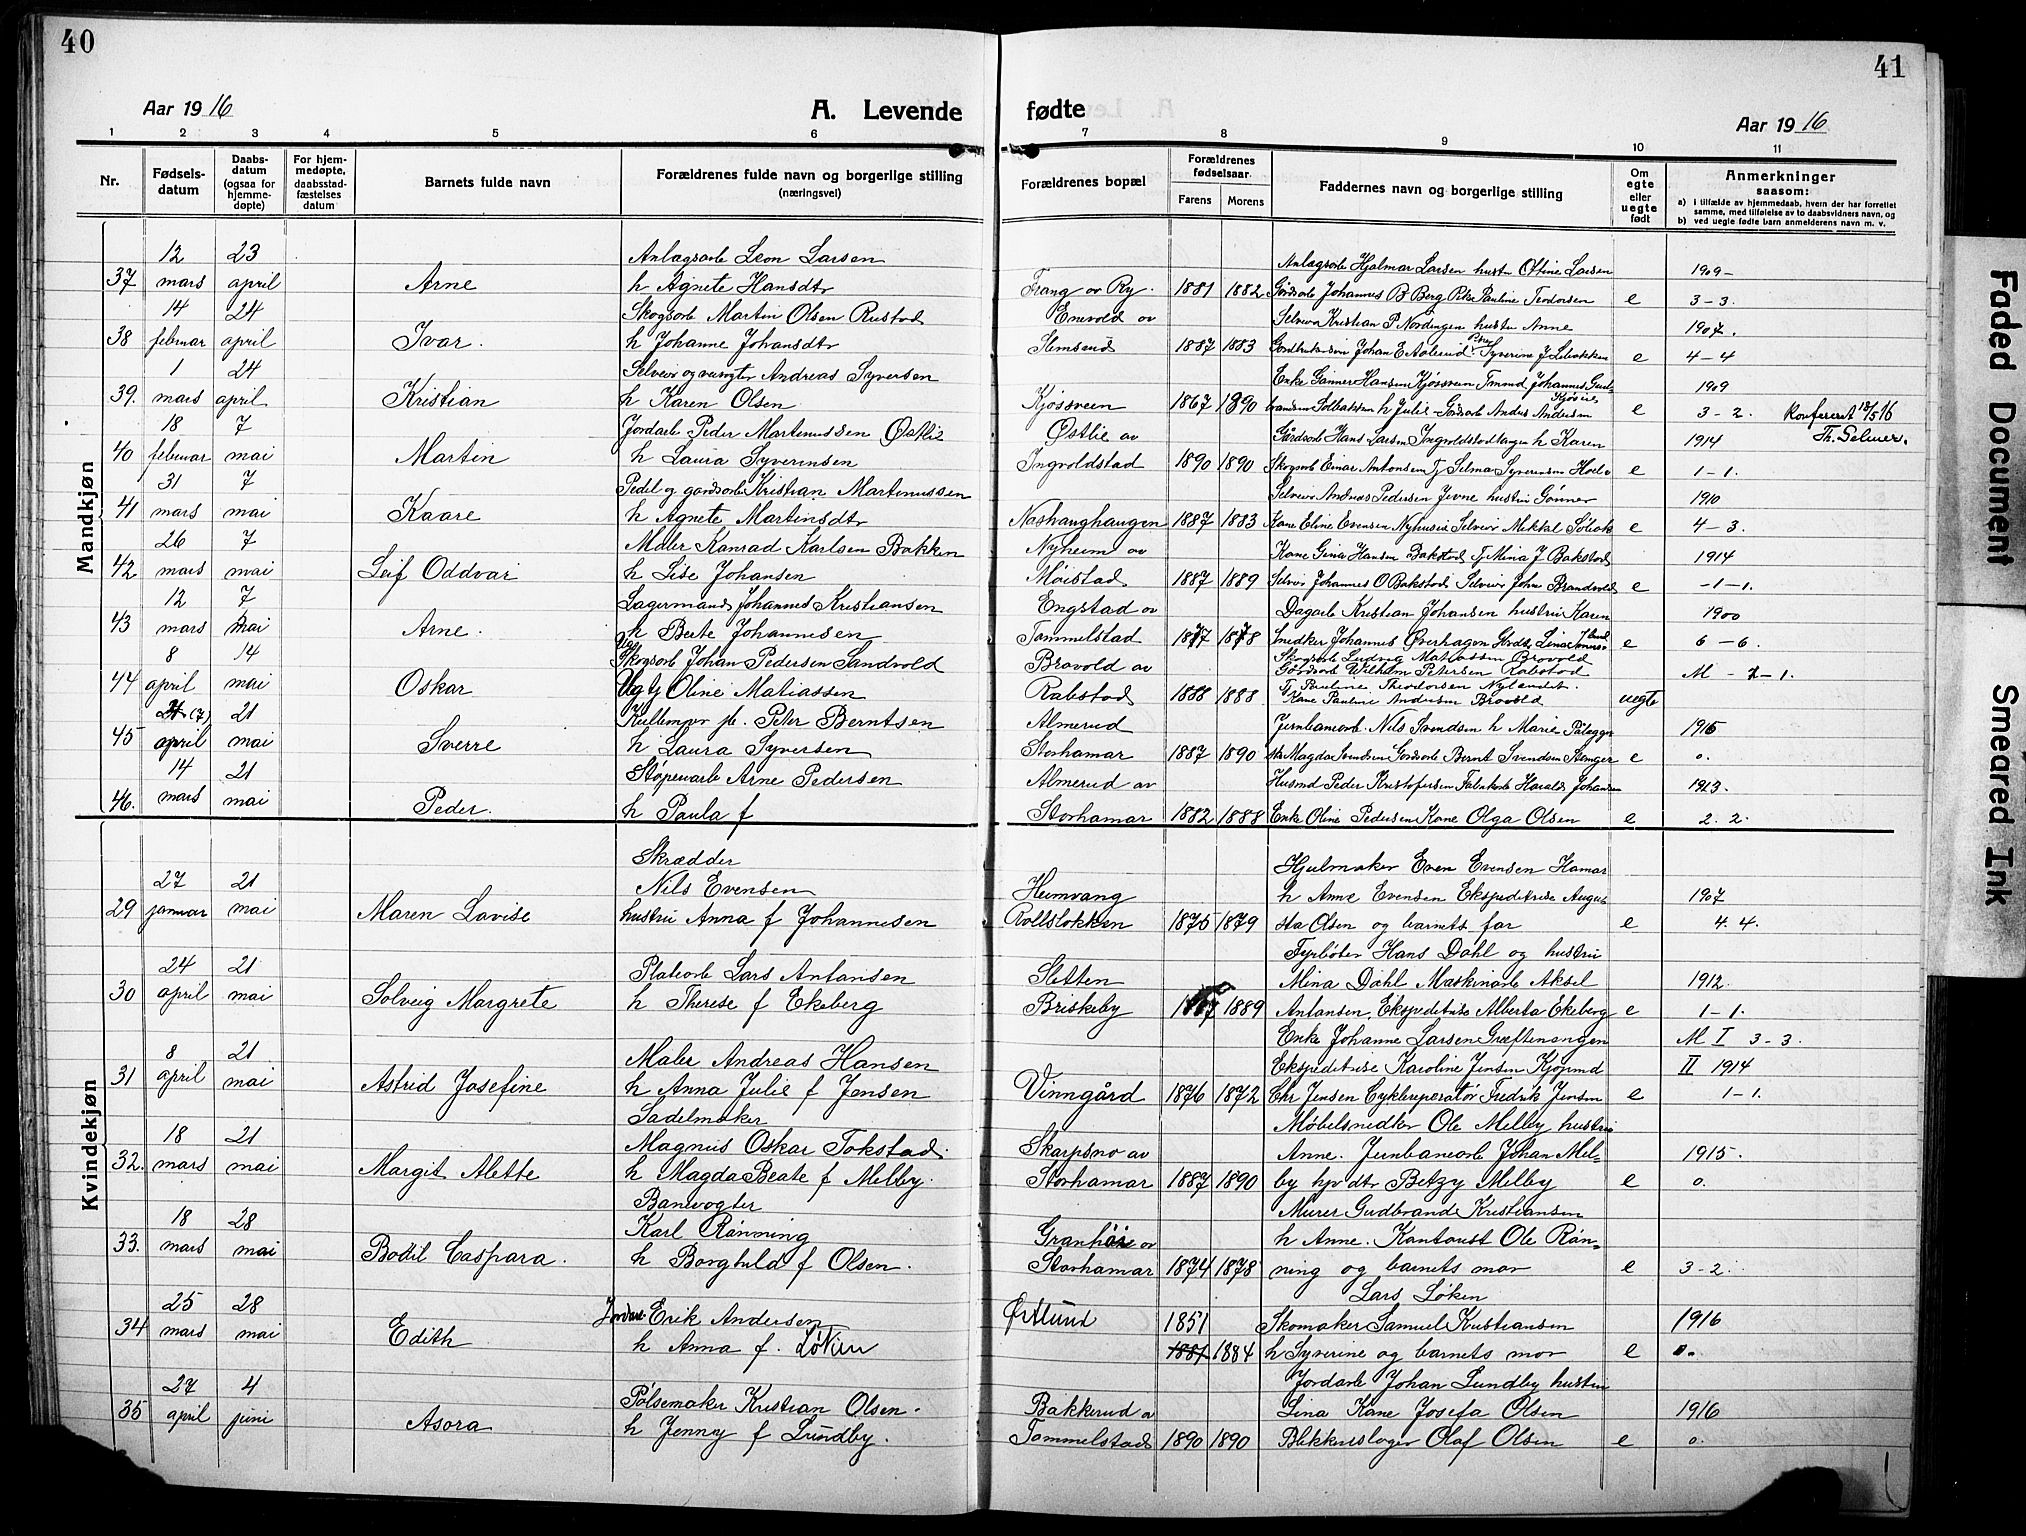 40
Aar 1916
A. Levende
1 2 3 4 5 6
Nr. Fødsels-datum Daabs-datum (ogsaa for hjemme-døpte) For hjem-medøpte, daabsstad-fæstelses datum Barnets fulde navn Forældrenes fulde navn og borgerlige stilling (næringsvei)
Mandkjøn
12 23 Anlægsarb Leon Larsen
37 mars april Arne h Agnete Hansdtr
14 24 Skogsarb Martin Olsen Rustad
38 februar april Ivar. h Johanne Johansdtr
1 24 Selveier og veivogter Andreas Syversen
39. mars april Kristian h Karen Olsen
18 7 Jordarb Peder Martinussen Østlie
40 februar mai Martin h Laura Syverinsen
31 7 Pedel og gardsarb Kristian Martinussen
41 mars mai Kaare h Agnete Martinsdtr
26 7 Maler Konrad Karlsen Bakken
42 mars mai Leif Oddvar h Lise Johansen
12 7 Lagermand Johannes Kristiansen
43 mars mai Arne. h Beate Johannesen
8 14 Skogsarb Johan Pedersen Sandvold
44 april mai Oskar Ug Tj Oline Matiassen
(7) 21 Peter Berntsen
45 april mai Sverre h Laura Syversen
14 21 Støperiarb Arne Pedersen
46. mars mai Peder. h Paula f
Kvindekjøn
Skrædder
27 21 Nils Evensen
29 januar mai Maren Lovise hustru Anna f Johannesen
24 21 Platearb Lars Antonsen
30 april mai Solveig Margrete h Therese f Ekeberg
8 21 Maler Andreas Hansen
31 april mai Astrid Josefine h Anna Julie f Jensen
Sadelmaker
18 21 Magnus Oskar Tokstad.
32. mars mai Margit Alette h Magda Beate f Melby.
Banevogter
18 28 Karl Rønning
33. mars mai Bodil Caspara. h Borghild f Olsen.
25 28 Jordarb Erik Andersen
34 mars mai Edith h Anna f. Løken
27 4 Pølsemaker Kristian Olsen.
35 april juni Asora h Jenny f Lundby.
41
fødte
Aar 1916
7 8 9 10 11
Forældrenes bopæl Forældrenes fødselsaar Farens Morens Faddernes navn og borgerlige stilling Om egte eller uegte født Anmerkninger saasom:
a) i tilfælde av hjemmedaab, hvem der har forrettet samme, med tilføielse av to daabsvidners navn, og
b) ved uegte fødte barn anmelderens navn m. v.
Anlægsarb Hjalmar Larsen hustru Otine Larsen 1909-
Frang av Ry. 1881 1882 Gårdsarb Johannes B Berg Pike Pauline Teodorsen e 3-3.
Enevold av Selveier Kristian P Nordengen hustru Anne 1907.
Semsrud 1887 1883 Johan E Aaserud Syverine J Libakken e 4-4
Enke Gunner Hansen Kjøsveen Tmmd Johannes Gud- 1909
Kjøssveen 1867 1890 brandsen Solbakken h Julie Gårdsarb Anders Andersen e 3-2. Konfereret 18/5 16
Østlie av Gårdsarb Hans Larsen Ingvoldstadhagen h Karen 1914 Th. Selmer.
Ingvoldstad 1890 1890 Skogsarb Einar Antonsen Tj Selma Syverinsen e 1-1.
Selveier Andreas Pedersen Jevne hustru Gunner 1910
Nashaughaugen 1887 1883 Kone Eline Evensen Nyhusie Selveier Mikkel e 4-3.
Nyheim av Kone Gina Hansen Bakstad Tj Mina J Bakstad 1914
Møistad 1887 1889 Selveier Johannes O Bakstad Selveier Johne Brandvold e -1-1.
Engstad av Dagarb Kristian Johansen hustru Karen 1900
Tommelstad 1877 1878 Snedker Johannes Øverhagen e 6-6
Brovold av Skogsarb Ludvig Matiassen Brovold
Gårdsarb Wilhelm Petersen Rabstad M-2-1.
Rabstad 1888 1888 Tj Pauline Theodorsen Nylandet. Kone Pauline Andersen Brovold uegte
Almerud Jernbanearb. Nils Svendsen h Marie 1915
Storhamar 1887 1890 Magda Svendsen Gårdsarb Bernt Svendsen Stenger e o.
Almerud av Husmd Peder Kristofersen Fabrikarb Harald Johansen 1913.
Storhamar 1882 1888 Enke Oline Pedersen Kone Olga Olsen e 2.2.
Hjulmaker Even Evensen Hamar
Heimvang h Anne Evensen Ekspeditrise Augus 1907
Rollsløkken 1875 1879 sta Olsen og barnets far e 4.4.
Fyrbøter Hans Dahl og hustru
Sletten Mina Dahl Maskinarb Aksel 1912.
Briskeby 1889 Antonsen, Ekspeditrise Alberta Ekeberg e 1-1.
Enke Johanne Larsen Grøftenengen M I 3-3.
Ekspeditrise Karoline Jensen Kjøpmd II 1914
Vinngård 1876 1872 Chr Jensen Cykkelreperatør Fredrik Jensen e 1-1.
Møbelsnedker Ole Melby hustru
Skarpsno av Anne. Jernbanearb Johan Mel= 1915.
Storhamar 1887 1890 by hjv dtr Betzy Melby e o.
Murer Gudbrand Kristiansen
Granhøi av h Anne. Kontorist Ole Røn=
Storhamar 1874 1878 ning og barnets mor e 3-2.
Lars Løken
Østlund 1851 Skomaker Samuel Kristiansen 1916
1881 1884 h Syverine og barnets mor e o.
Jordarb Johan Lundby hustru
Bakkerud av Lina Kone Josefa Olsen 1916
Tommelstad 1890 1890 Blikkenslager Olaf Olsen e o.
Faded Document
Smeared Ink